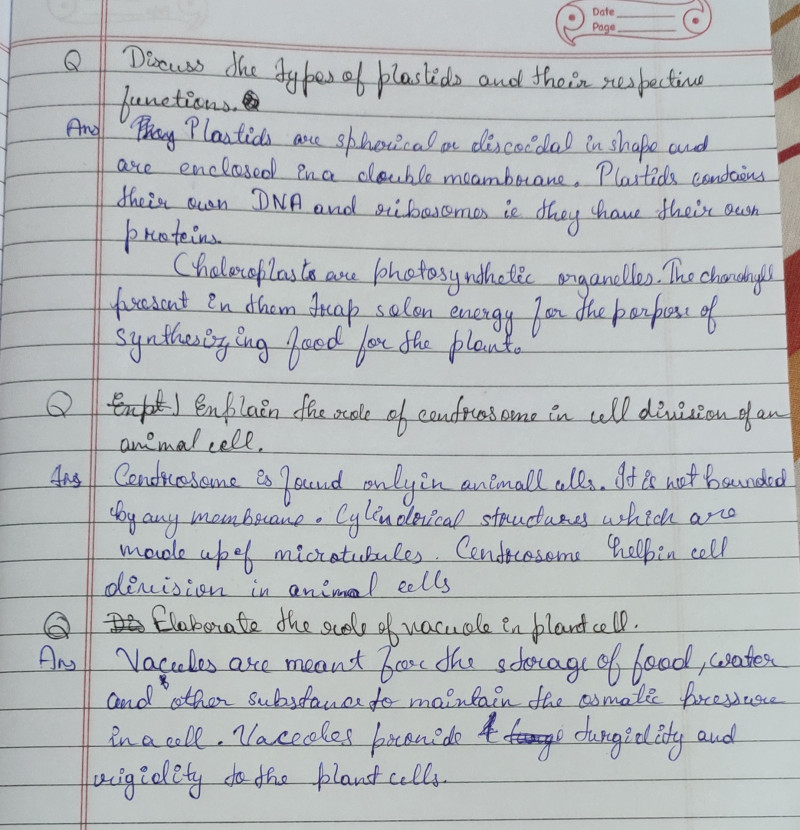 Date
Page
Q Discuss the types of plastids and their respective
functions.
Ans Plastids are spherical or discoidal in shape and
are enclosed in a double meambrane. Plastids contains
their own DNA and ribosomes ie they have their own
proteins.
Choloroplasts are photosynthetic organelles. The
present in them trap solar energy for the porpose of
synthesizing food for the plant.
Q Explain the role of centrosome in cell division of an
animal cell.
Ans Centrosome is found only in animall cells. It is not bounded
by any membrane. Cylinderical structures which are
made up of microtubules. Centrosome help in cell
division in animal cells
Q Elaborate the role of vacuole in plant cell.
An Vacules are meant for the storage of food, water
and other substance to maintain the osmatic pressure
in a cell. Vaceoles provide turgidity and
rigidity to the plant cells.